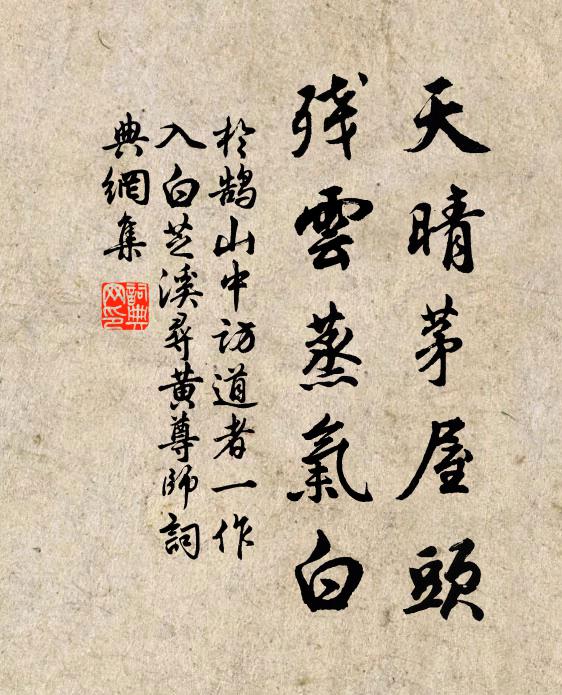 天晴茅屋頭
殘雲蒸氣白
於鵠山中訪道者一作
入白芝溪尋黃尊師詞
典網集
詞典
网印